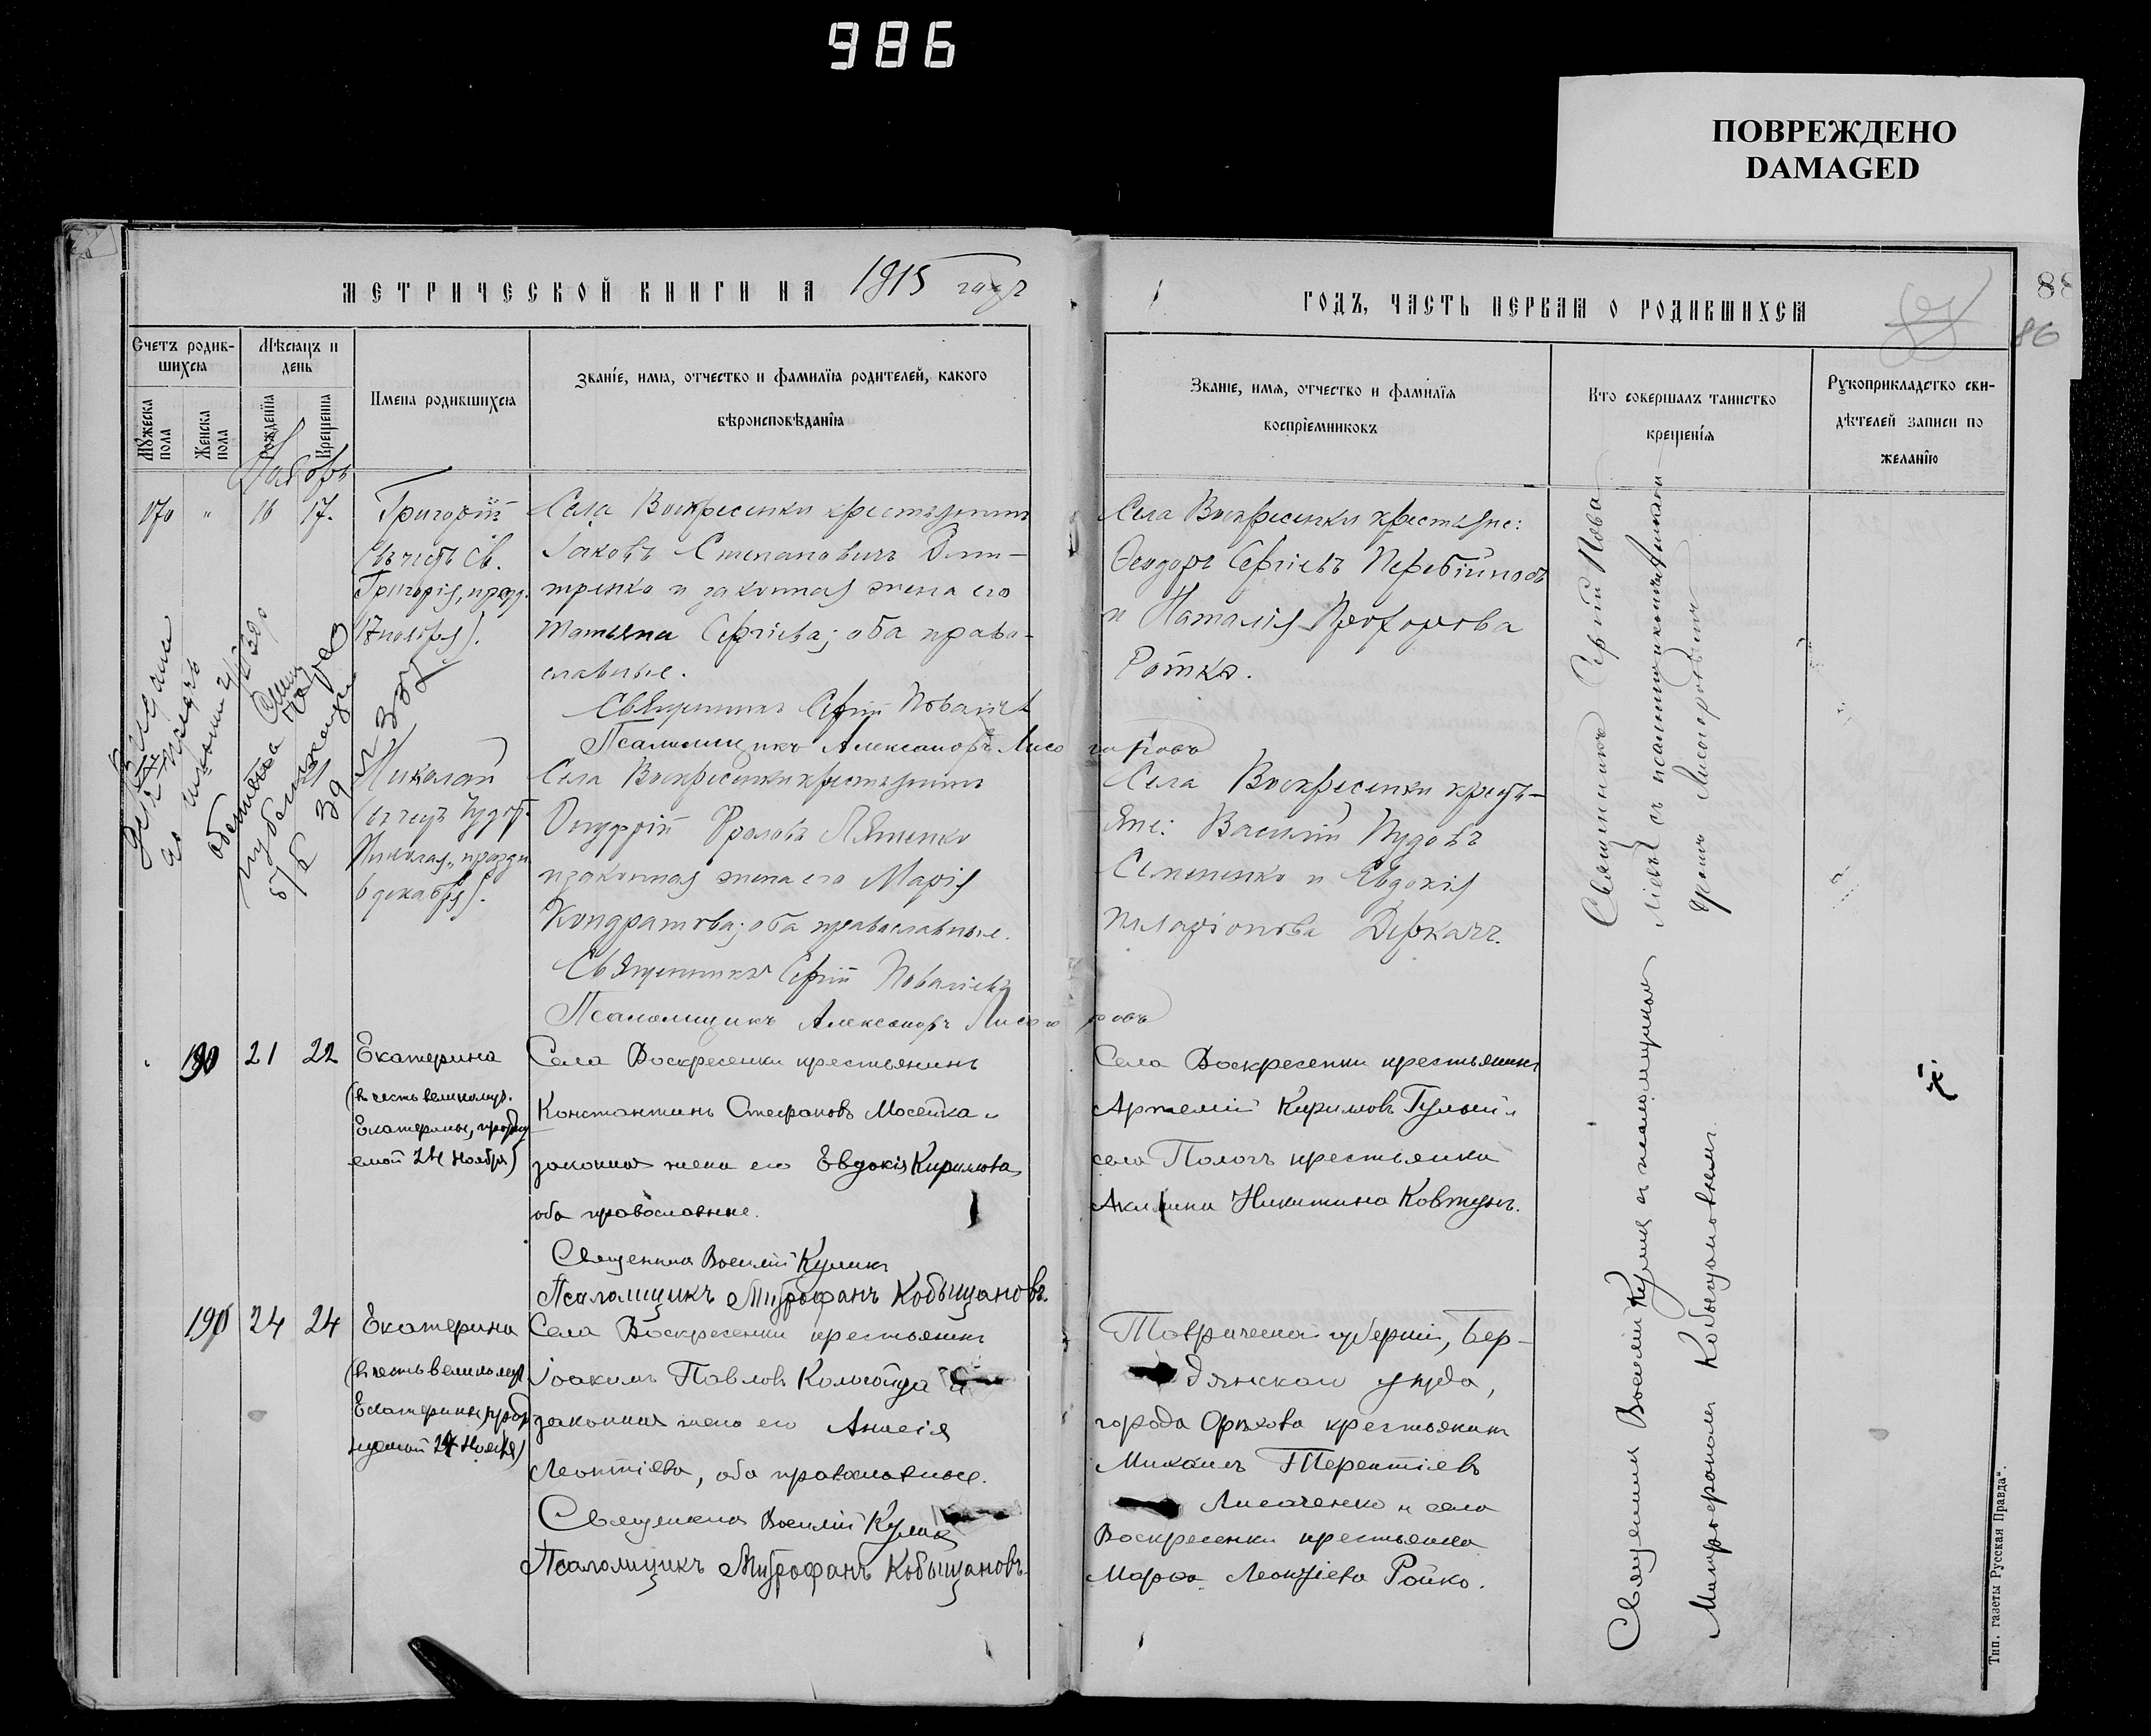 986
ПОВРЕЖДЕНО
DAMAGED
МЕТРИЧЕСКОЙ КНИГИ НА 1915 годъ
ГОДЪ, ЧАСТЬ ПЕРВАЯ О РОДИВШИХСЯ
88
86
Счетъ родив-
шихся
Мѣсяцъ и
день
Мужеска пола
Женска пола
Рожденія
Крещенія
Имена родившихся
Званіе, имя, отчество и фамилія родителей, какого
вѣроисповѣданія
Званіе, имя, отчество и фамилія
воспріемниковъ
Кто совершалъ таинство
крещенія
Рукоприкладство сви-
дѣтелей записи по
желанію
Ноябрь
170 " 16 17.
Григорій
(въ честь Св.
Григорія, празд.
17 ноября).
Села Воскресенки крестьянинъ
Іаковъ Степановичъ Дми-
тренко и законная жена его
Татьяна Сергіева; оба право-
славные.
Священникъ Сергій
Псаломщикъ Александръ Лисогоровъ
Села Воскресенки крестьяне:
Ѳеодоръ Сергіевъ Перебійносъ
и Наталія Прохорова
Николай
(въ честь Чудотв.
Николая, праздн.
6 декабря).
Села Воскресенки крестьянинъ
Онуфрій Фроловъ Ляшенко
и законная жена его Марія
Кондратова; оба православные.
Священникъ Сергій
Псаломщикъ Александръ Лисогоровъ
Села Воскресенки крестъ-
яне: Василій Пудовъ
Семененко и Евдокія
Иларіонова Деркачъ.
190 21 22
Екатерина
(въ честь великомуч.
Екатерины, празд
емой 24 Ноября)
Села Воскресенки крестьянинъ
Константинъ Стефановъ Мосейка и
законная жена его Евдокія Кирилова
оба православные.
Священникъ Василій Куликъ
Псаломщикъ Митрофанъ Кобыщановъ.
Села Воскресенки крестьянинъ
Артемій Кириловъ и
села Пологъ крестьянка
Акилина Никитина Ковтунъ.
191 24 24
Екатерина
(въ честь великомуч
Екатерины, празд
нуемой 24 Ноября)
Села Воскресенки крестьянинъ
Іоакимъ Павловъ и
законная жена его Анисія
Леонтіева, оба православные.
Священникъ Василій Куликъ
Псаломщикъ Митрофанъ Кобыщановъ.
Таврической губерніи, Бер-
дянскаго уѣзда,
города Орѣхова крестьянинъ
Михаилъ Терентіевъ
Лисаченко и села
Воскресенки крестьянка
Марѳа Леонтіева Ройко.
Священникъ Сергій
съ псаломщикомъ Алексан-
дромъ Лисогоровымъ
Священникъ Василій Куликъ съ псаломщикомъ
Митрофаномъ Кобыщановымъ.
Тип. газеты Русская Правда".